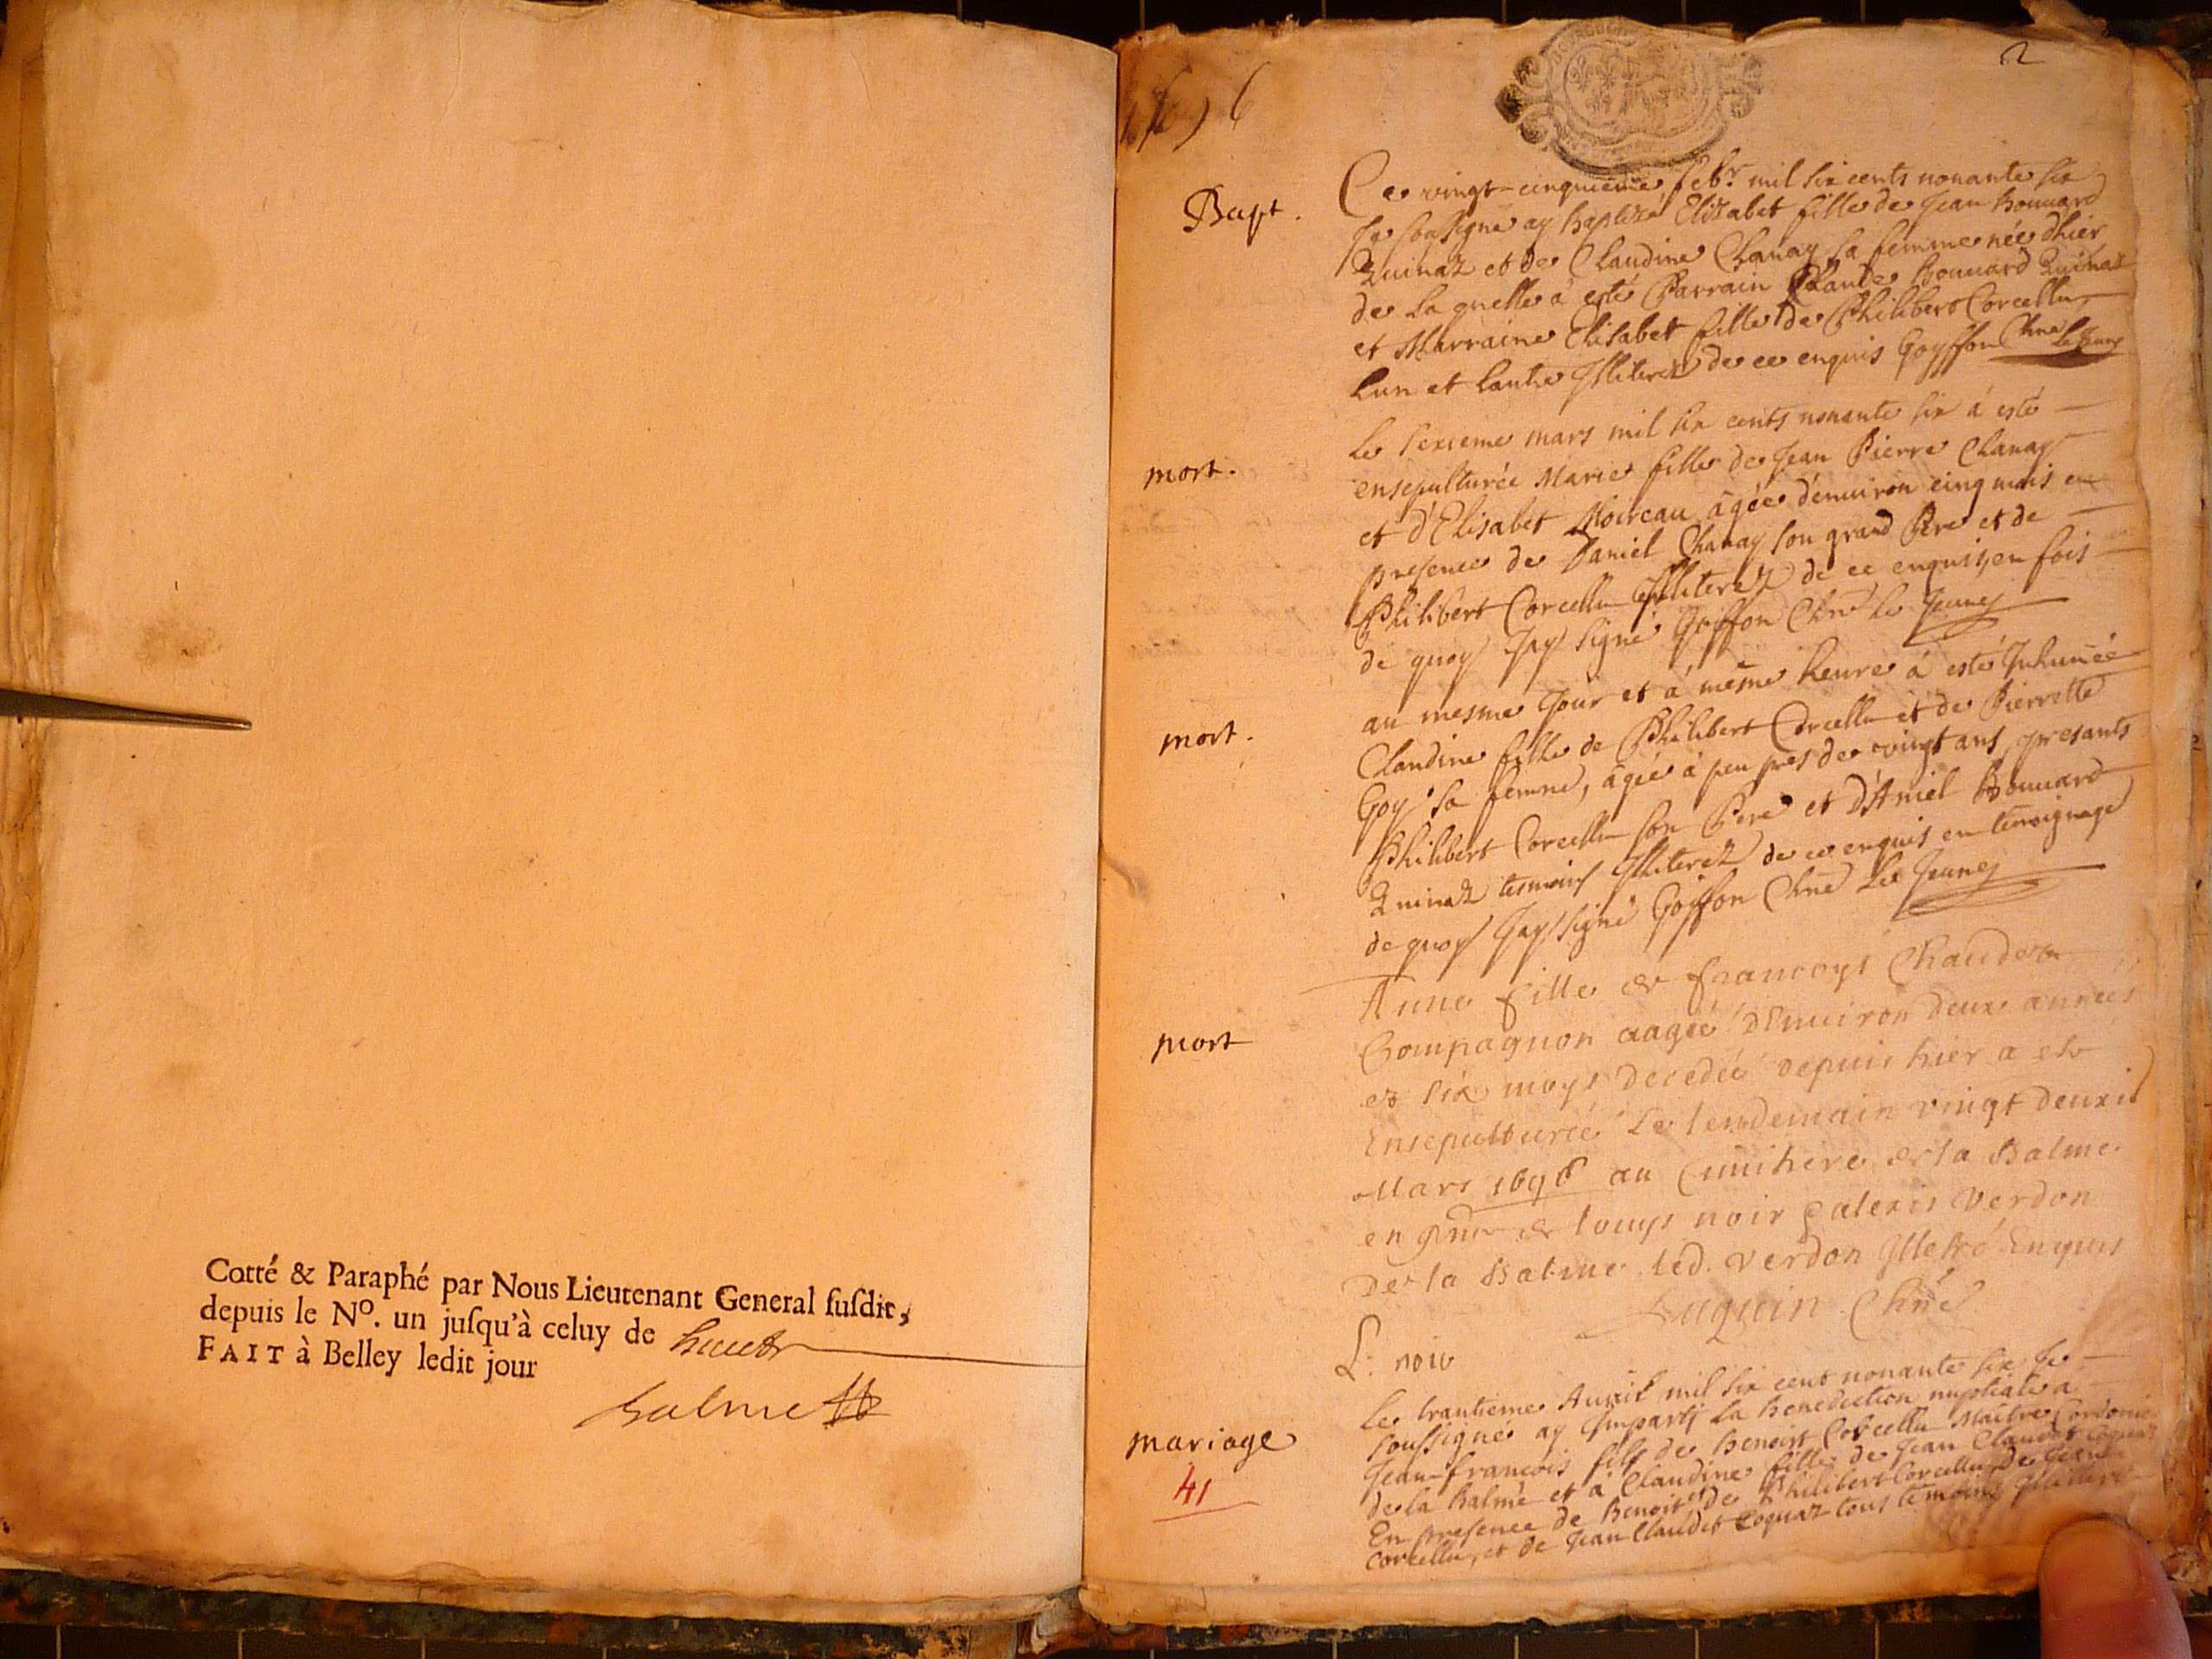 Cotté & Paraphé par Nous Lieutenant General ſuſdit,
depuis le Nº. un juſqu'à celuy de huict
FAIT à Belley ledit jour
2
1696
Bapt.
Ce vingt-cinquieme febr. mil six cents nonante six
Je soussigné ay baptizé Elizabet fille de Jean Bouuard
Quinaz et de Claudine Chanay sa femme née d'hier
de la quelle à esté Parrain Claude Bouuard Quinaz
et Marraine Elisabet fille de Philibert Corcellu
lun et lautre Jlliterez de ce enquis Goyffon Chne le Jeune
mort.
Le sexieme mars mil six cents nonante six à esté
ensepulturée Marie fille de Jean Pierre Chanay
et d'Elisabet Moireau âgée d'enuiron cinq mois en
presence de Daniel Chanay son grand Pere et de
Philibert Corcellu Jlliterez de ce enquis, en fois
de quoy Jay signé Goiffon Chne le Jeune
mort.
au mesme Jour et à même heure à esté Jnhumée
Claudine fille de Philibert Corcellu et de Pierrette
Goy sa femme, âgée à peu pres de vingt ans, presants
Philibert Corcellu son Pere et d'Aniel Bouuard
Quinaz tesmoins Jlliterez de ce enquis en temoignage
de quoy Jay signé Goiffon Chne Le Jeune
mort
Anne fille de francoys Chaudet
Compagnon aagée d'Enuiron deux années
et six moys decedée depuis hier a este
Ensepulturée Le lendemain vingt deuxie
Mars 1696 au Cimitiere de la Balme
en de louys noir Verdon
De la Balme led. Verdon Jlletré Enquis
Luquin Chne
L. noir
mariage
Le trantieme Auril mil six cent nonante six Je
soussigné ay Jmparti la benediction nuptiale a
Jean-francois fils de benoist Corcellu Maitre Cordonie
de la balme et à Claudine fille de Jean Claudet Coquaz
En presence de Benoist et de Philibert Corcellu de
corcellu, et de Jean Claudet Coquaz tous temoins
41